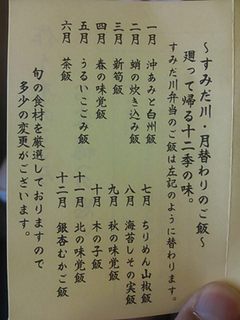 ～すみだ川・月替わりのご飯～
廻って帰る十二季の味。
すみだ川弁当のご飯は左記のように替わります。
一月 沖あみと白州飯
二月 蛸の炊き込み飯
三月 新筍飯
四月 春の味覚飯
五月 うるいこごみ飯
六月 茶飯
七月 ちりめん山椒飯
八月 海苔しその実飯
九月 秋の味覚飯
十月 木の子飯
十一月 北の味覚飯
十二月 銀杏むかご飯
旬の食材を厳選しておりますので
多少の変更がございます。